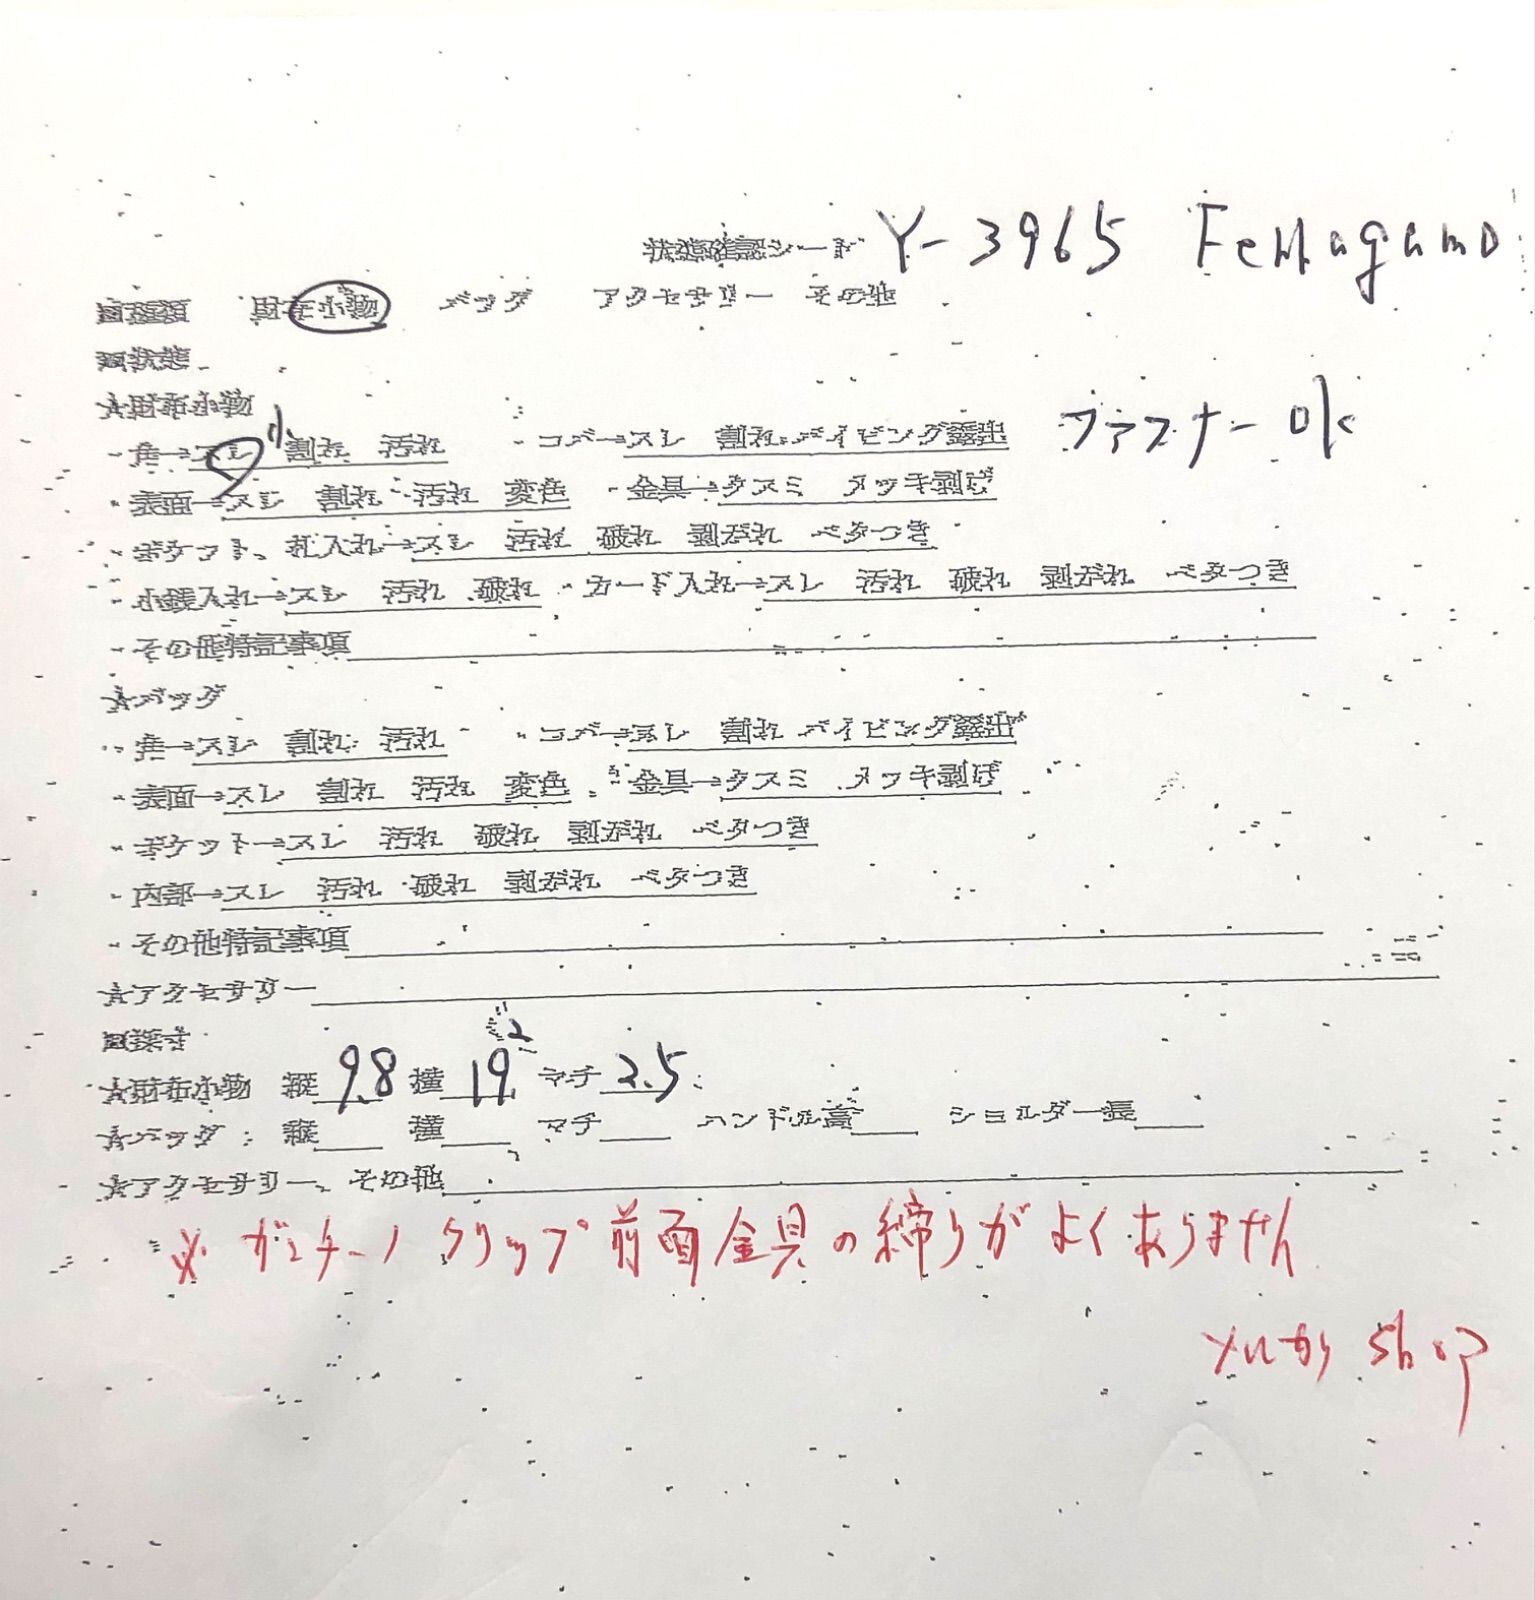 状態確認シート Y-3965 Ferragamo
☒種類 財布小物 バッグ アクセサリー その他
☒状態
★財布小物
・角→スレ 小 割れ 汚れ ・コバ→スレ 割れ パイピング露出 ファスナー ok
・表面→スレ 割れ 汚れ 変色 ・金具→クスミ メッキ剥げ
・ポケット、札入れ→スレ 汚れ 破れ 剥がれ ベタつき
・小銭入れ→スレ 汚れ 破れ ・カード入れ→スレ 汚れ 破れ 剥がれ ベタつき
・その他特記事項
★バッグ
・角→スレ 割れ 汚れ ・コバ→スレ 割れ パイピング露出
・表面→スレ 割れ 汚れ 変色 ・金具→クスミ メッキ剥げ
・ポケット→スレ 汚れ 破れ 剥がれ ベタつき
・内部→スレ 汚れ 破れ 剥がれ ベタつき
・その他特記事項
★アクセサリー
☒採寸
★財布小物 縦 9.8 横 19 2 マチ 2.5
★バッグ 縦 横 マチ ハンドル高 ショルダー長
★アクセサリー、その他
※ ガンチーノ クリップ 前面金具の締りがよくありません
shop